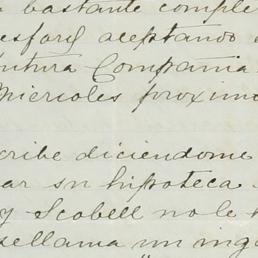 bastante comple
aceptando
utura Compañia
Miercoles proximo
cribe diciendome
ar su hipoteca
y Scobell no le
sellama un ing